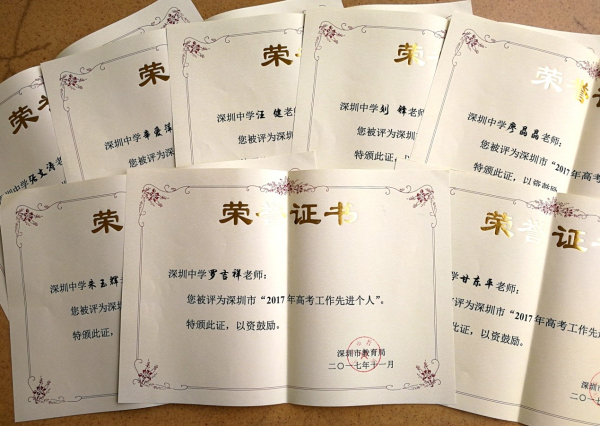 荣
深圳中学张文涛老
荣
深圳中学辛爱萍
您被评为深
特颁此证
荣
深圳中学汪 健老师
您被评为深圳
特颁此证，
荣
深圳中学刘 锋老师
您被评为深圳
特颁此证，
荣誉
深圳中学廖晶晶老师：
您被评为深圳市“2017年高考
特颁此证，以资鼓励。
荣
深圳中学朱玉辉
您被评为深
特颁此证，
荣誉证书
深圳中学罗吉祥老师：
您被评为深圳市“2017年高考工作先进个人”。
特颁此证，以资鼓励。
深圳市教育局
二〇一七年十一月
荣誉证
学甘东平老师：
您被评为深圳市“2017年高考工作先进
特颁此证，以资鼓励。
深圳市
二〇一七